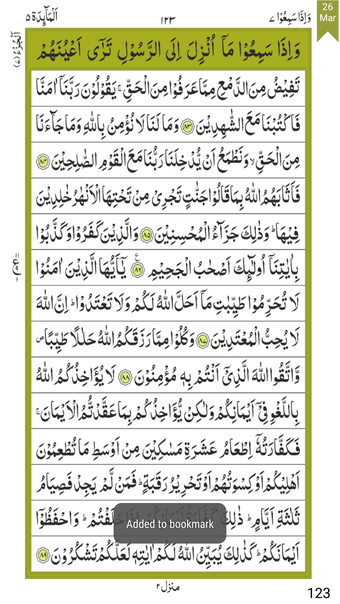 وَاِذَا سَمِعُوْا ٧ ١٢٣ اَلْمَآئِدَة ٥
26
Mar
اَلْجُزْءُ (٧)
وَاِذَا سَمِعُوْا مَآ اُنْزِلَ اِلَى الرَّسُوْلِ تَرٰٓى اَعْيُنَهُمْ
تَفِيْضُ مِنَ الدَّمْعِ مِمَّا عَرَفُوْا مِنَ الْحَقِّ ۚ يَقُوْلُوْنَ رَبَّنَآ اٰمَنَّا
فَاكْتُبْنَا مَعَ الشّٰهِدِيْنَ ﴿٨٣﴾ وَمَا لَنَا لَا نُؤْمِنُ بِاللّٰهِ وَمَا جَآءَنَا
مِنَ الْحَقِّ ۙ وَنَطْمَعُ اَنْ يُّدْخِلَنَا رَبُّنَا مَعَ الْقَوْمِ الصّٰلِحِيْنَ ﴿٨٤﴾
فَاَثَابَهُمُ اللّٰهُ بِمَا قَالُوْا جَنّٰتٍ تَجْرِيْ مِنْ تَحْتِهَا الْاَنْهٰرُ خٰلِدِيْنَ
فِيْهَا ۗ وَذٰلِكَ جَزَآءُ الْمُحْسِنِيْنَ ﴿٨٥﴾ وَالَّذِيْنَ كَفَرُوْا وَكَذَّبُوْا
بِاٰيٰتِنَآ اُولٰٓئِكَ اَصْحٰبُ الْجَحِيْمِ ﴿٨٦﴾ يٰٓاَيُّهَا الَّذِيْنَ اٰمَنُوْا
لَا تُحَرِّمُوْا طَيِّبٰتِ مَآ اَحَلَّ اللّٰهُ لَكُمْ وَلَا تَعْتَدُوْا ۗ اِنَّ اللّٰهَ
لَا يُحِبُّ الْمُعْتَدِيْنَ ﴿٨٧﴾ وَكُلُوْا مِمَّا رَزَقَكُمُ اللّٰهُ حَلٰلًا طَيِّبًا ۖ
وَّاتَّقُوا اللّٰهَ الَّذِيْٓ اَنْتُمْ بِهٖ مُؤْمِنُوْنَ ﴿٨٨﴾ لَا يُؤَاخِذُكُمُ اللّٰهُ
بِاللَّغْوِ فِيْٓ اَيْمَانِكُمْ وَلٰكِنْ يُّؤَاخِذُكُمْ بِمَا عَقَّدْتُّمُ الْاَيْمَانَ ۚ
فَكَفَّارَتُهٗٓ اِطْعَامُ عَشَرَةِ مَسٰكِيْنَ مِنْ اَوْسَطِ مَا تُطْعِمُوْنَ
اَهْلِيْكُمْ اَوْ كِسْوَتُهُمْ اَوْ تَحْرِيْرُ رَقَبَةٍ ۗ فَمَنْ لَّمْ يَجِدْ فَصِيَامُ
ثَلٰثَةِ اَيَّامٍ ۗ ذٰلِكَ كَفَّارَةُ اَيْمَانِكُمْ اِذَا حَلَفْتُمْ ۗ وَاحْفَظُوْٓا
Added to bookmark
اَيْمَانَكُمْ ۗ كَذٰلِكَ يُبَيِّنُ اللّٰهُ لَكُمْ اٰيٰتِهٖ لَعَلَّكُمْ تَشْكُرُوْنَ ﴿٨٩﴾
منزل ٢
123